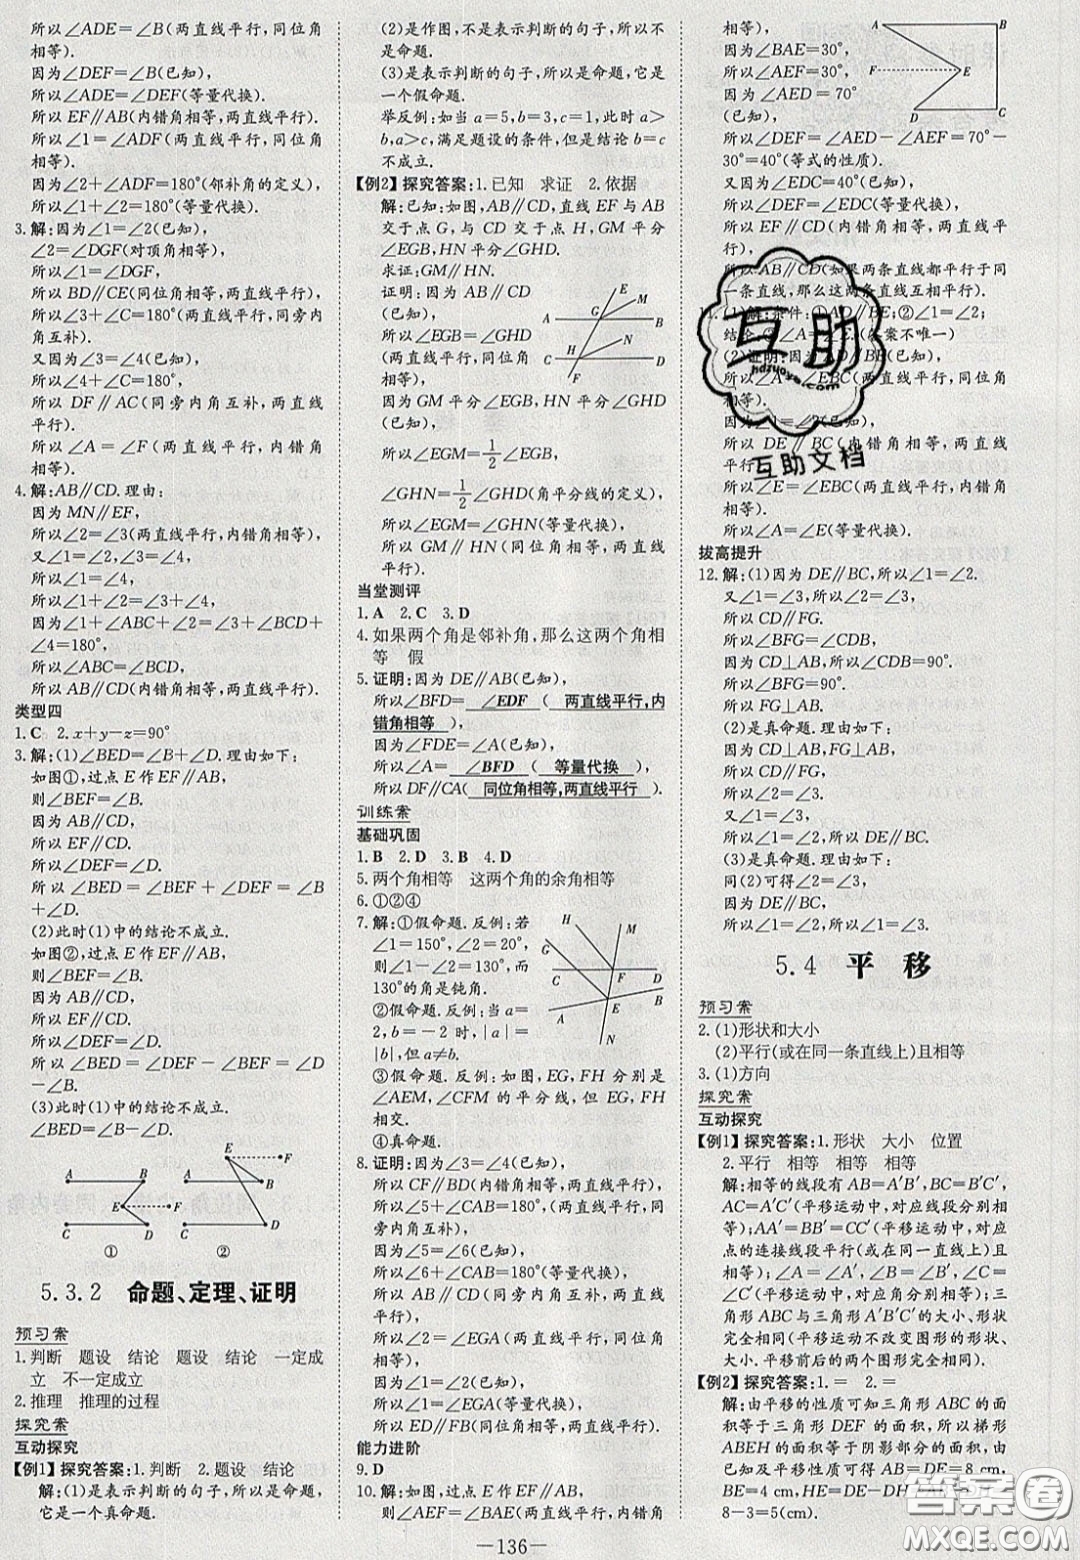 所以∠ADE=∠B(两直线平行,同位角
相等).
因为∠DEF=∠B(已知),
所以∠ADE=∠DEF(等量代换).
所以EF∥AB(内错角相等,两直线平行).
所以∠1=∠ADF(两直线平行,同位角
相等).
因为∠2+∠ADF=180°(邻补角的定义),
所以∠1+∠2=180°(等量代换).
3.解:因为∠1=∠2(已知),
∠2=∠DGF(对顶角相等),
所以∠1=∠DGF,
所以BD∥CE(同位角相等,两直线平行),
所以∠3+∠C=180°(两直线平行,同旁内
角互补).
又因为∠3=∠4(已知),
所以∠4+∠C=180°,
所以DF∥AC(同旁内角互补,两直线
平行).
所以∠A=∠F(两直线平行,内错角
相等).
4.解:AB∥CD.理由:
因为MN∥EF,
所以∠2=∠3(两直线平行,内错角相等),
又∠1=∠2,∠3=∠4,
所以∠1=∠4,
所以∠1=∠2=∠3=∠4.
又∠1+∠2+∠ABC=∠BCD+∠3+
∠4=180°,
所以∠ABC=∠BCD,
所以AB∥CD(内错角相等,两直线平行).
类型四
1.C 2.x+y-z=90°
3.解:(1)∠BED=∠B+∠D.理由如下:
如图①,过点E作EF∥AB,
则∠BEF=∠B.
因为AB∥CD,
所以EF∥CD.
所以∠DEF=∠D.
所以∠BED=∠BEF+∠DEF=∠B
+∠D.
(2)此时(1)中的结论不成立.
如图②,过点E作EF∥AB,
则∠BEF=∠B.
因为AB∥CD,
所以EF∥CD.
所以∠DEF=∠D.
所以∠BED=∠DEF-∠BEF=∠D
-∠B.
(3)此时(1)中的结论不成立.
∠BED=∠B-∠D.
A B E F C D ①
E F A B C D ②
5.3.2 命题、定理、证明
预习案
1.判断 题设 结论 题设 结论 一定成
立 不一定成立
2.推理 推理的过程
探究案
互动探究
【例1】探究答案:1.判断 2.题设 结论
解:(1)是表示判断的句子,所以是命题,
它是一个真命题.
(2)是作图,不是表示判断的句子,所以不
是命题.
(3)是表示判断的句子,所以是命题,它是
一个假命题.
举反例:如当a=5,b=3,c=1,此时a>
b,a>c,满足题设的条件,但结论b=c
不成立.
【例2】探究答案:1.已知 求证 2.依据
解:已知:如图,AB∥CD,直线EF与AB
交于点G,与CD交于点H,GM平分
∠EGB,HN平分∠GHD.
求证:GM∥HN.
证明:因为AB∥CD
(已知),
所以∠EGB=∠GHD
(两直线平行,同位角
相等),
E M A G B N H C D F
因为GM平分∠EGB,HN平分∠GHD
(已知),
所以∠EGM=1/2∠EGB,
∠GHN=1/2∠GHD(角平分线的定义),
所以∠EGM=∠GHN(等量代换),
所以GM∥HN(同位角相等,两直线
平行).
当堂测评
1.A 2.C 3.D
4.如果两个角是邻补角,那么这两个角相
等 假
5.证明:因为DE∥AB(已知),
所以∠BFD= ∠EDF ( 两直线平行,内
错角相等 ),
因为∠FDE=∠A(已知),
所以∠A= ∠BFD ( 等量代换 ),
所以DF∥CA( 同位角相等,两直线平行 ).
训练案
基础巩固
1.B 2.D 3.B 4.D
5.两个角相等 这两个角的余角相等
6.①②④
7.解:①假命题.反例:若
∠1=150°,∠2=20°,
则∠1-∠2=130°,而
130°的角是钝角.
②假命题.反例:当a=
2,b=-2时,|a|=
|b|,但a≠b.
H M G C F D E B A N
③假命题.反例:如图,EG,FH分别是
∠AEM,∠CFM的平分线,但EG,FH
相交.
④真命题.
8.证明:因为∠3=∠4(已知),
所以CF∥BD(内错角相等,两直线平行),
所以∠5+∠CAB=180°(两直线平行,同
旁内角互补),
因为∠5=∠6(已知),
所以∠6+∠CAB=180°(等量代换),
所以AB∥CD(同旁内角互补,两直线
平行),
所以∠2=∠EGA(两直线平行,同位角
相等),
因为∠1=∠2(已知),
所以∠1=∠EGA(等量代换),
所以ED∥FB(同位角相等,两直线平行).
能力进阶
9.D
10.解:如图,过点E作EF∥AB,
则∠AEF=∠BAE(两直线平行,内错
角相等).
因为∠BAE=30°,
所以∠AEF=30°,
因为∠AED=70°
(已知),
A B F E D C
所以∠DEF=∠AED-∠AEF=70°-
30°=40°(等式的性质).
又因为∠EDC=40°(已知),
所以∠DEF=∠EDC(等量代换),
行),
所以AB∥CD(如果两条直线都平行于同
一条直线,那么这两条直线互相平行).
解:条件:①AD∥BE;②∠1=∠2;
(2)证明:因为AD∥BE(已知),
所以∠A=∠EBC(两直线平行,同位角
相等).
所以DE∥BC(内错角相等,两直线
平行).
所以∠E=∠EBC(两直线平行,内错角
相等),
所以∠A=∠E(等量代换).
拔高提升
12.解:(1)因为DE∥BC,所以∠1=∠2.
又∠1=∠3,所以∠2=∠3,
所以CD∥FG,
所以∠BFG=∠CDB,
因为CD⊥AB,所以∠CDB=90°.
所以∠BFG=90°.
所以FG⊥AB.
(2)是真命题.理由如下:
因为CD⊥AB,FG⊥AB,
所以CD∥FG,
所以∠2=∠3.
又∠1=∠3,
所以∠1=∠2,所以DE∥BC.
(3)是真命题.理由如下:
同(2)可得∠2=∠3,
因为DE∥BC,
所以∠1=∠2,所以∠1=∠3.
5.4 平移
预习案
2.(1)形状和大小
(2)平行(或在同一条直线上)且相等
3.(1)方向
探究案
互动探究
【例1】探究答案:1.形状 大小 位置
2.平行 相等 相等 相等
解:相等的线段有AB=A′B′,BC=
B′C′,AC=A′C′(平移运动中,对应线段分别相
等);AA′=BB′=CC′(平移运动中,对应
点的连接线段平行(或在同一直线上)且
相等);∠BAC=∠B′A′C′,∠ABC=
∠A′B′C′,∠ACB=
∠A′C′B′(平移运动中,对应角分别相等);三角
形ABC与三角形A′B′C′的大小、形状
完全相同(平移运动不改变图形的形状、
大小.平移前后的两个图形完全相同).
【例2】探究答案:1.= 2.=
解:由平移的性质可知三角形ABC的面
积等于三角形DEF的面积,所以梯形
ABEH的面积等于阴影部分的面积,由
已知及平移的性质可得AB=DE=8 cm,
BE=4 cm,
8-3=5(cm).
—136—
互助
hdzuoye.com
互助文档
答案圈
MXQE.COM